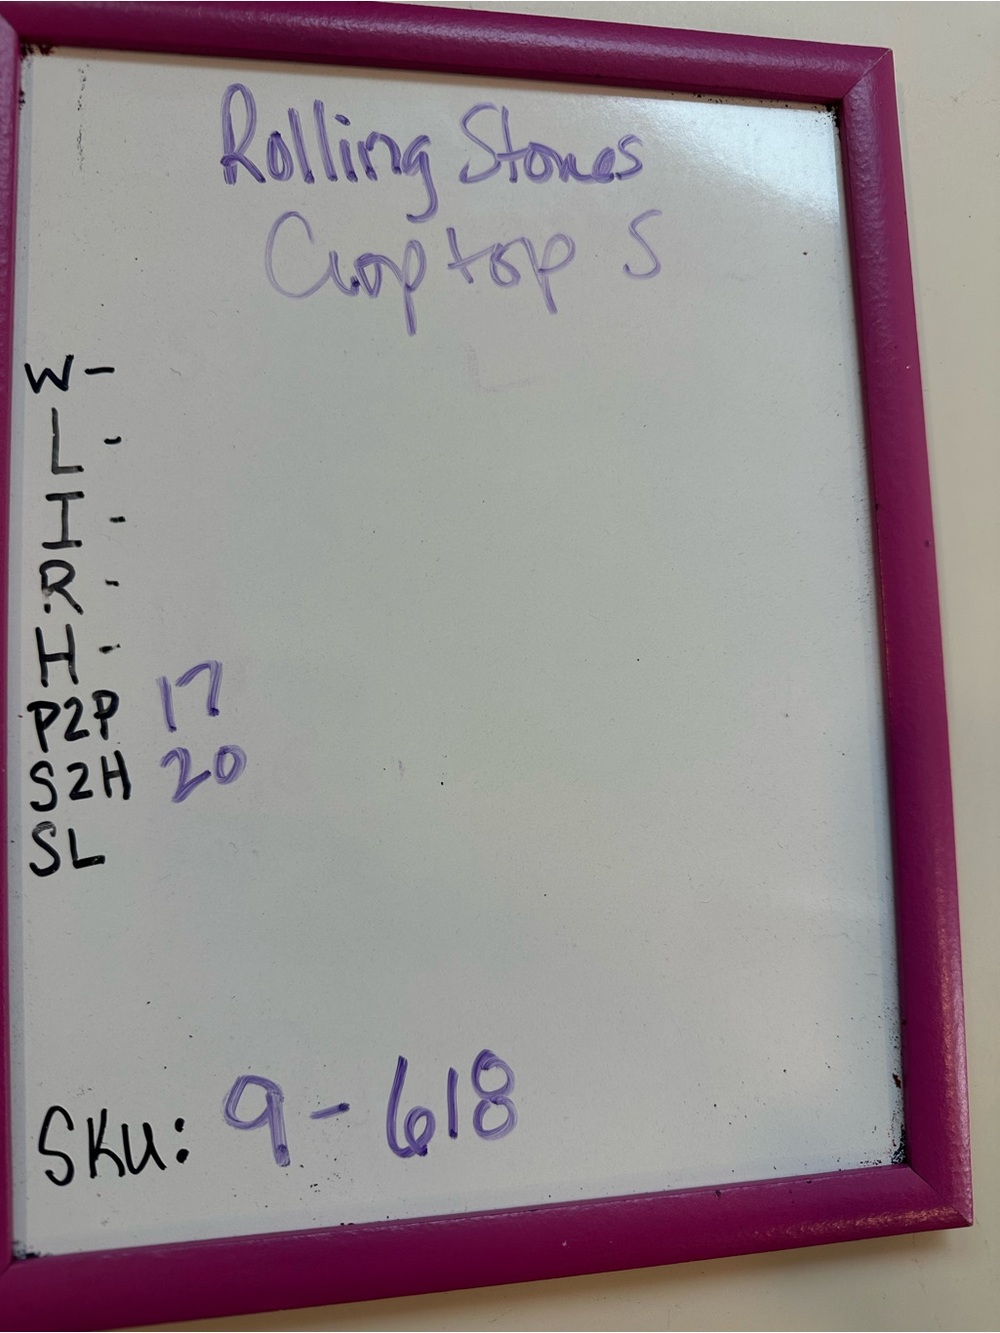 Rolling Stones
Crop top S
W-
L-
I-
R-
H-
P2P 17
S2H 20
SL
SKU: 9-618